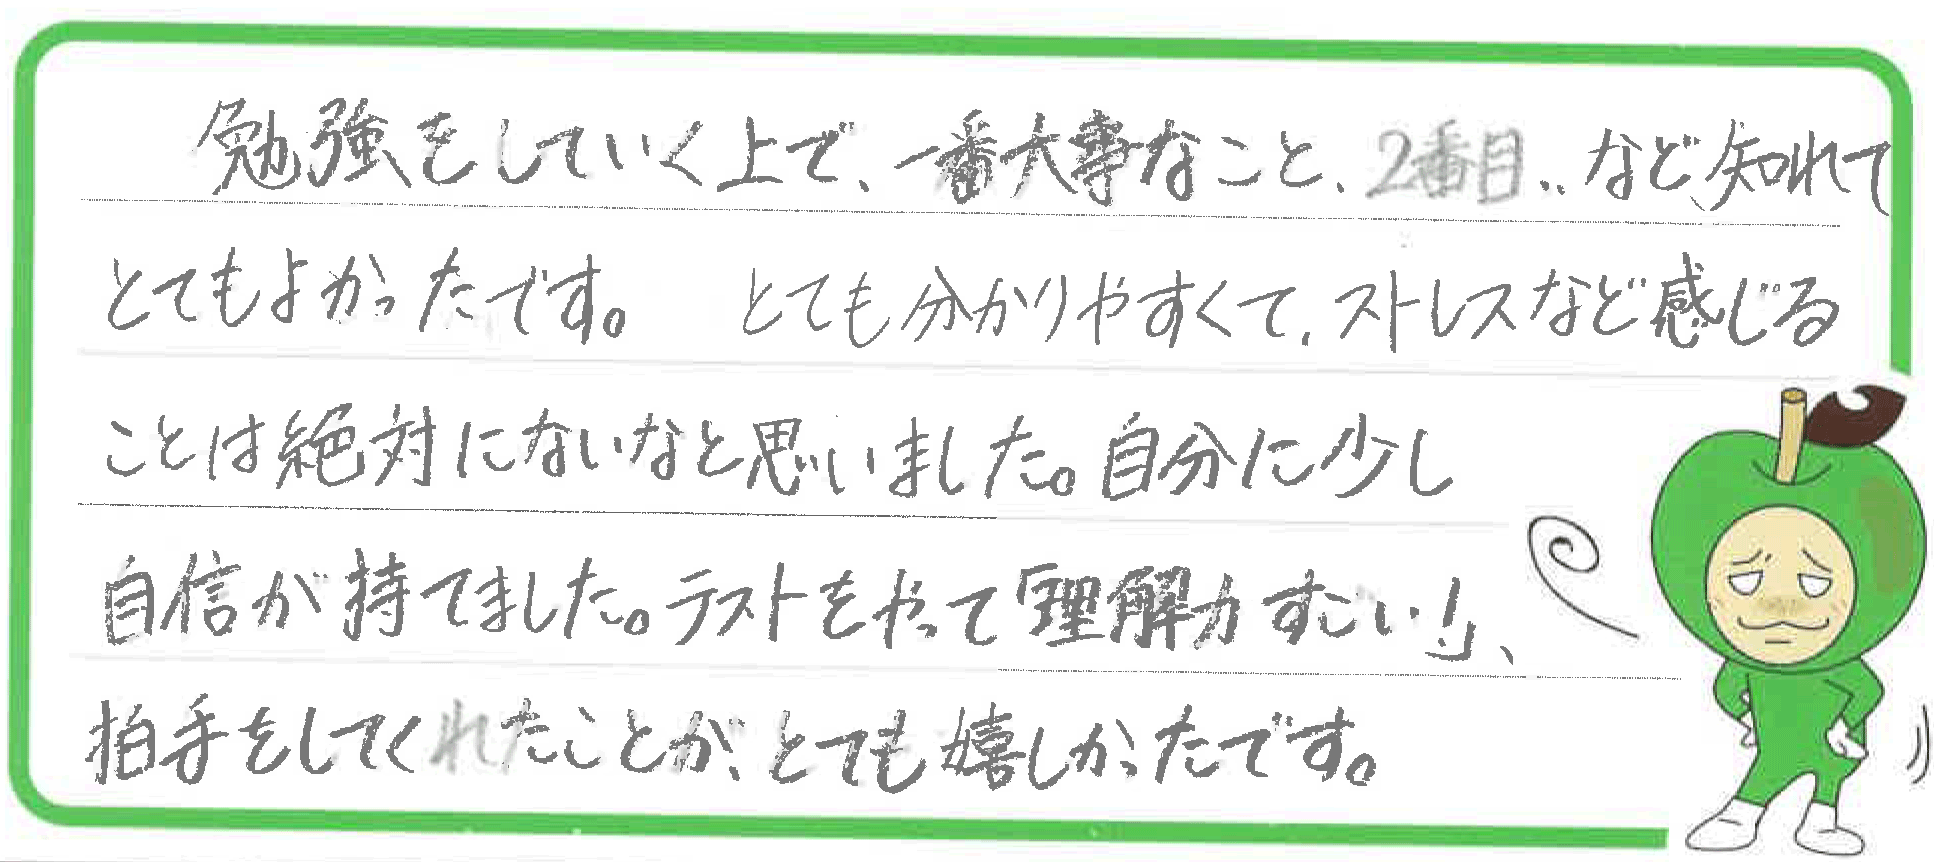 勉強をしていく上で、一番大事なこと、2番目、、など、知れて
とてもよかったです。 とても分かりやすくて、ストレスなど感じる
ことは絶対にないなと思いました。自分に少し
自信が持てました。テストをやって「理解力すごい!」、
拍手をしてくれたことが、とても嬉しかったです。